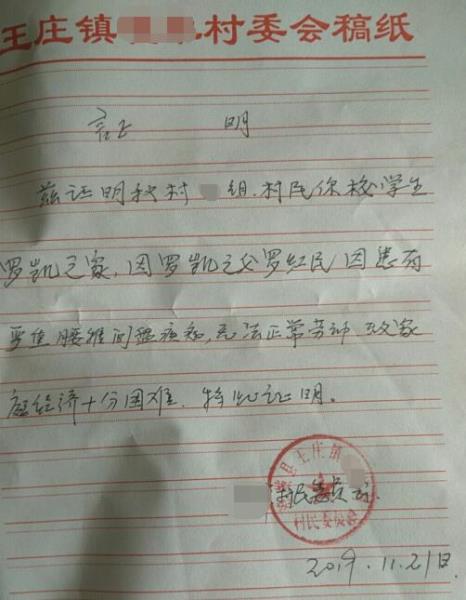 王庄镇 村委会稿纸
证 明
兹证明我村 组.村民你校学生
罗凯之家,因罗凯之父罗红民因患有
严重腰椎间盘疾病,无法正常劳动 致家
庭经济十分困难.特此证明.
县王庄镇
村民委员会
村民委员会.
2019.11.21日.